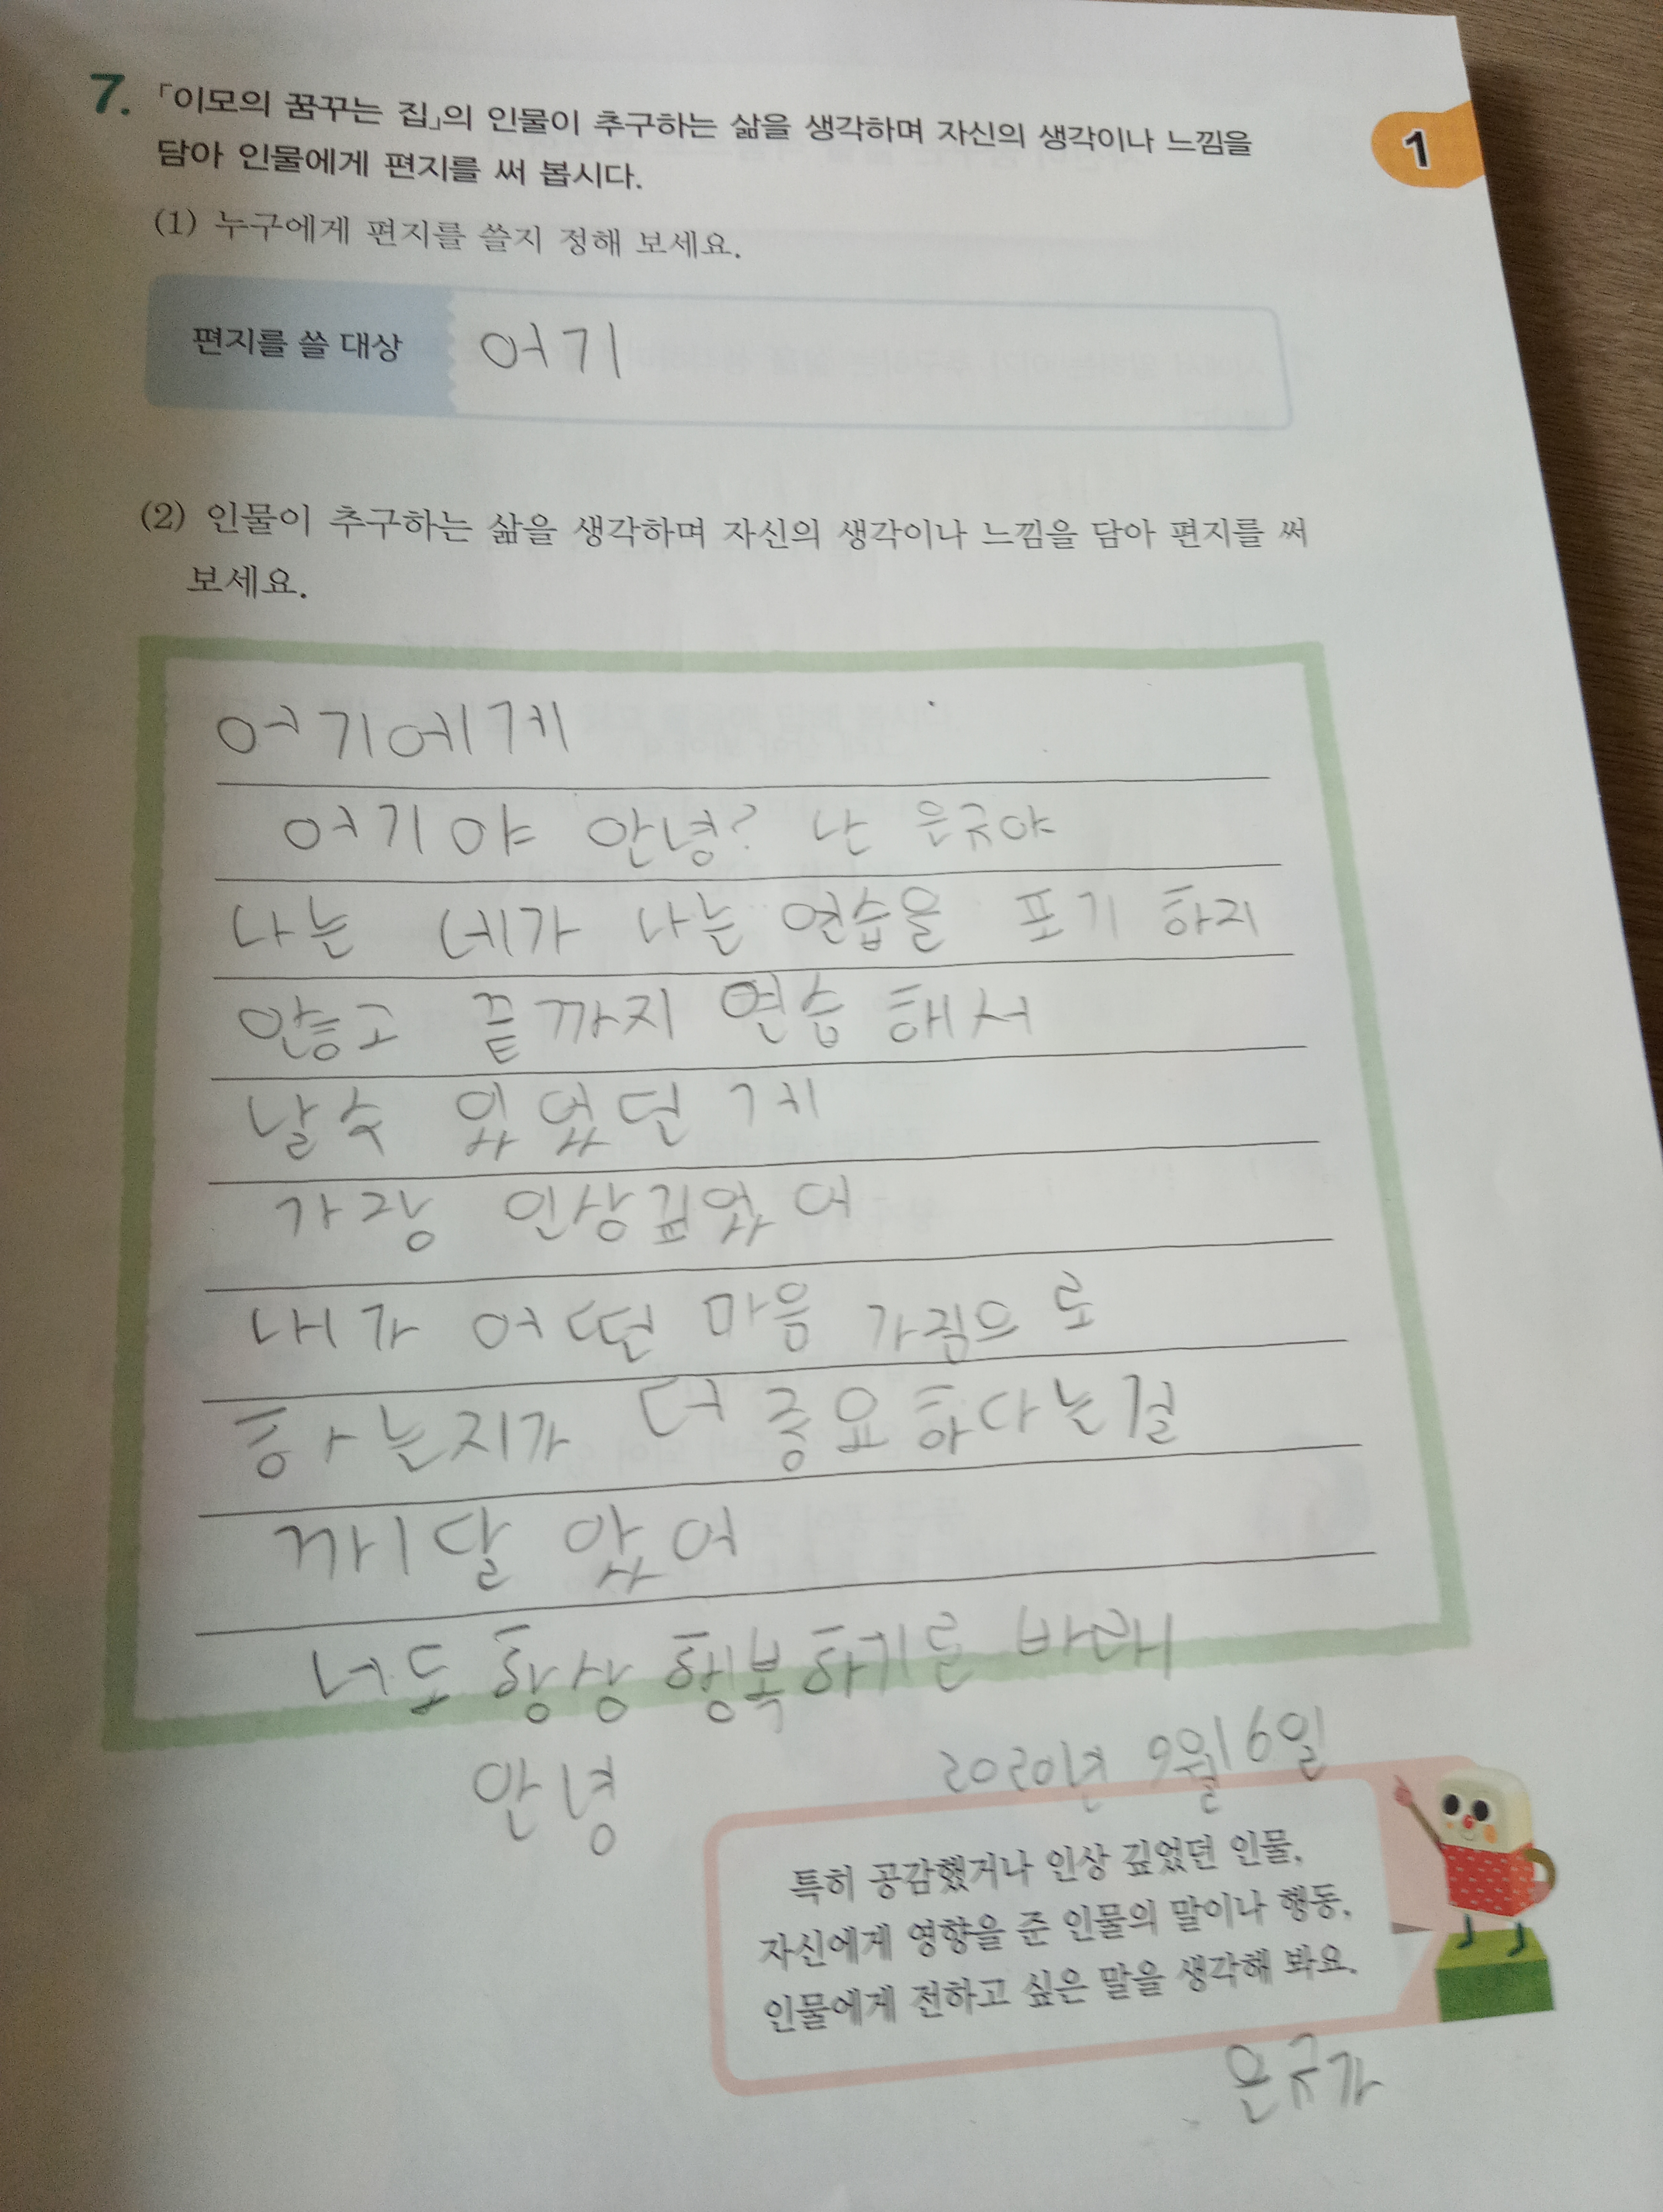 7. 「이모의 꿈꾸는 집」의 인물이 추구하는 삶을 생각하며 자신의 생각이나 느낌을
담아 인물에게 편지를 써 봅시다.
1
(1) 누구에게 편지를 쓸지 정해 보세요.
편지를 쓸 대상 어기
(2) 인물이 추구하는 삶을 생각하며 자신의 생각이나 느낌을 담아 편지를 써
보세요.
어기에게
어기야 안녕? 난 은규야
나는 네가 나는 연습을 포기 하지
않고 끝까지 연습 해서
날수 있었던 게
가장 인상깊었어
내가 어떤 마음 가짐으로
하는지가 더 중요하다는걸
깨달았어
너도 항상 행복하기를 바래
안녕 2020년 9월 6일
특히 공감했거나 인상 깊었던 인물,
자신에게 영향을 준 인물의 말이나 행동,
인물에게 전하고 싶은 말을 생각해 봐요.
은규가